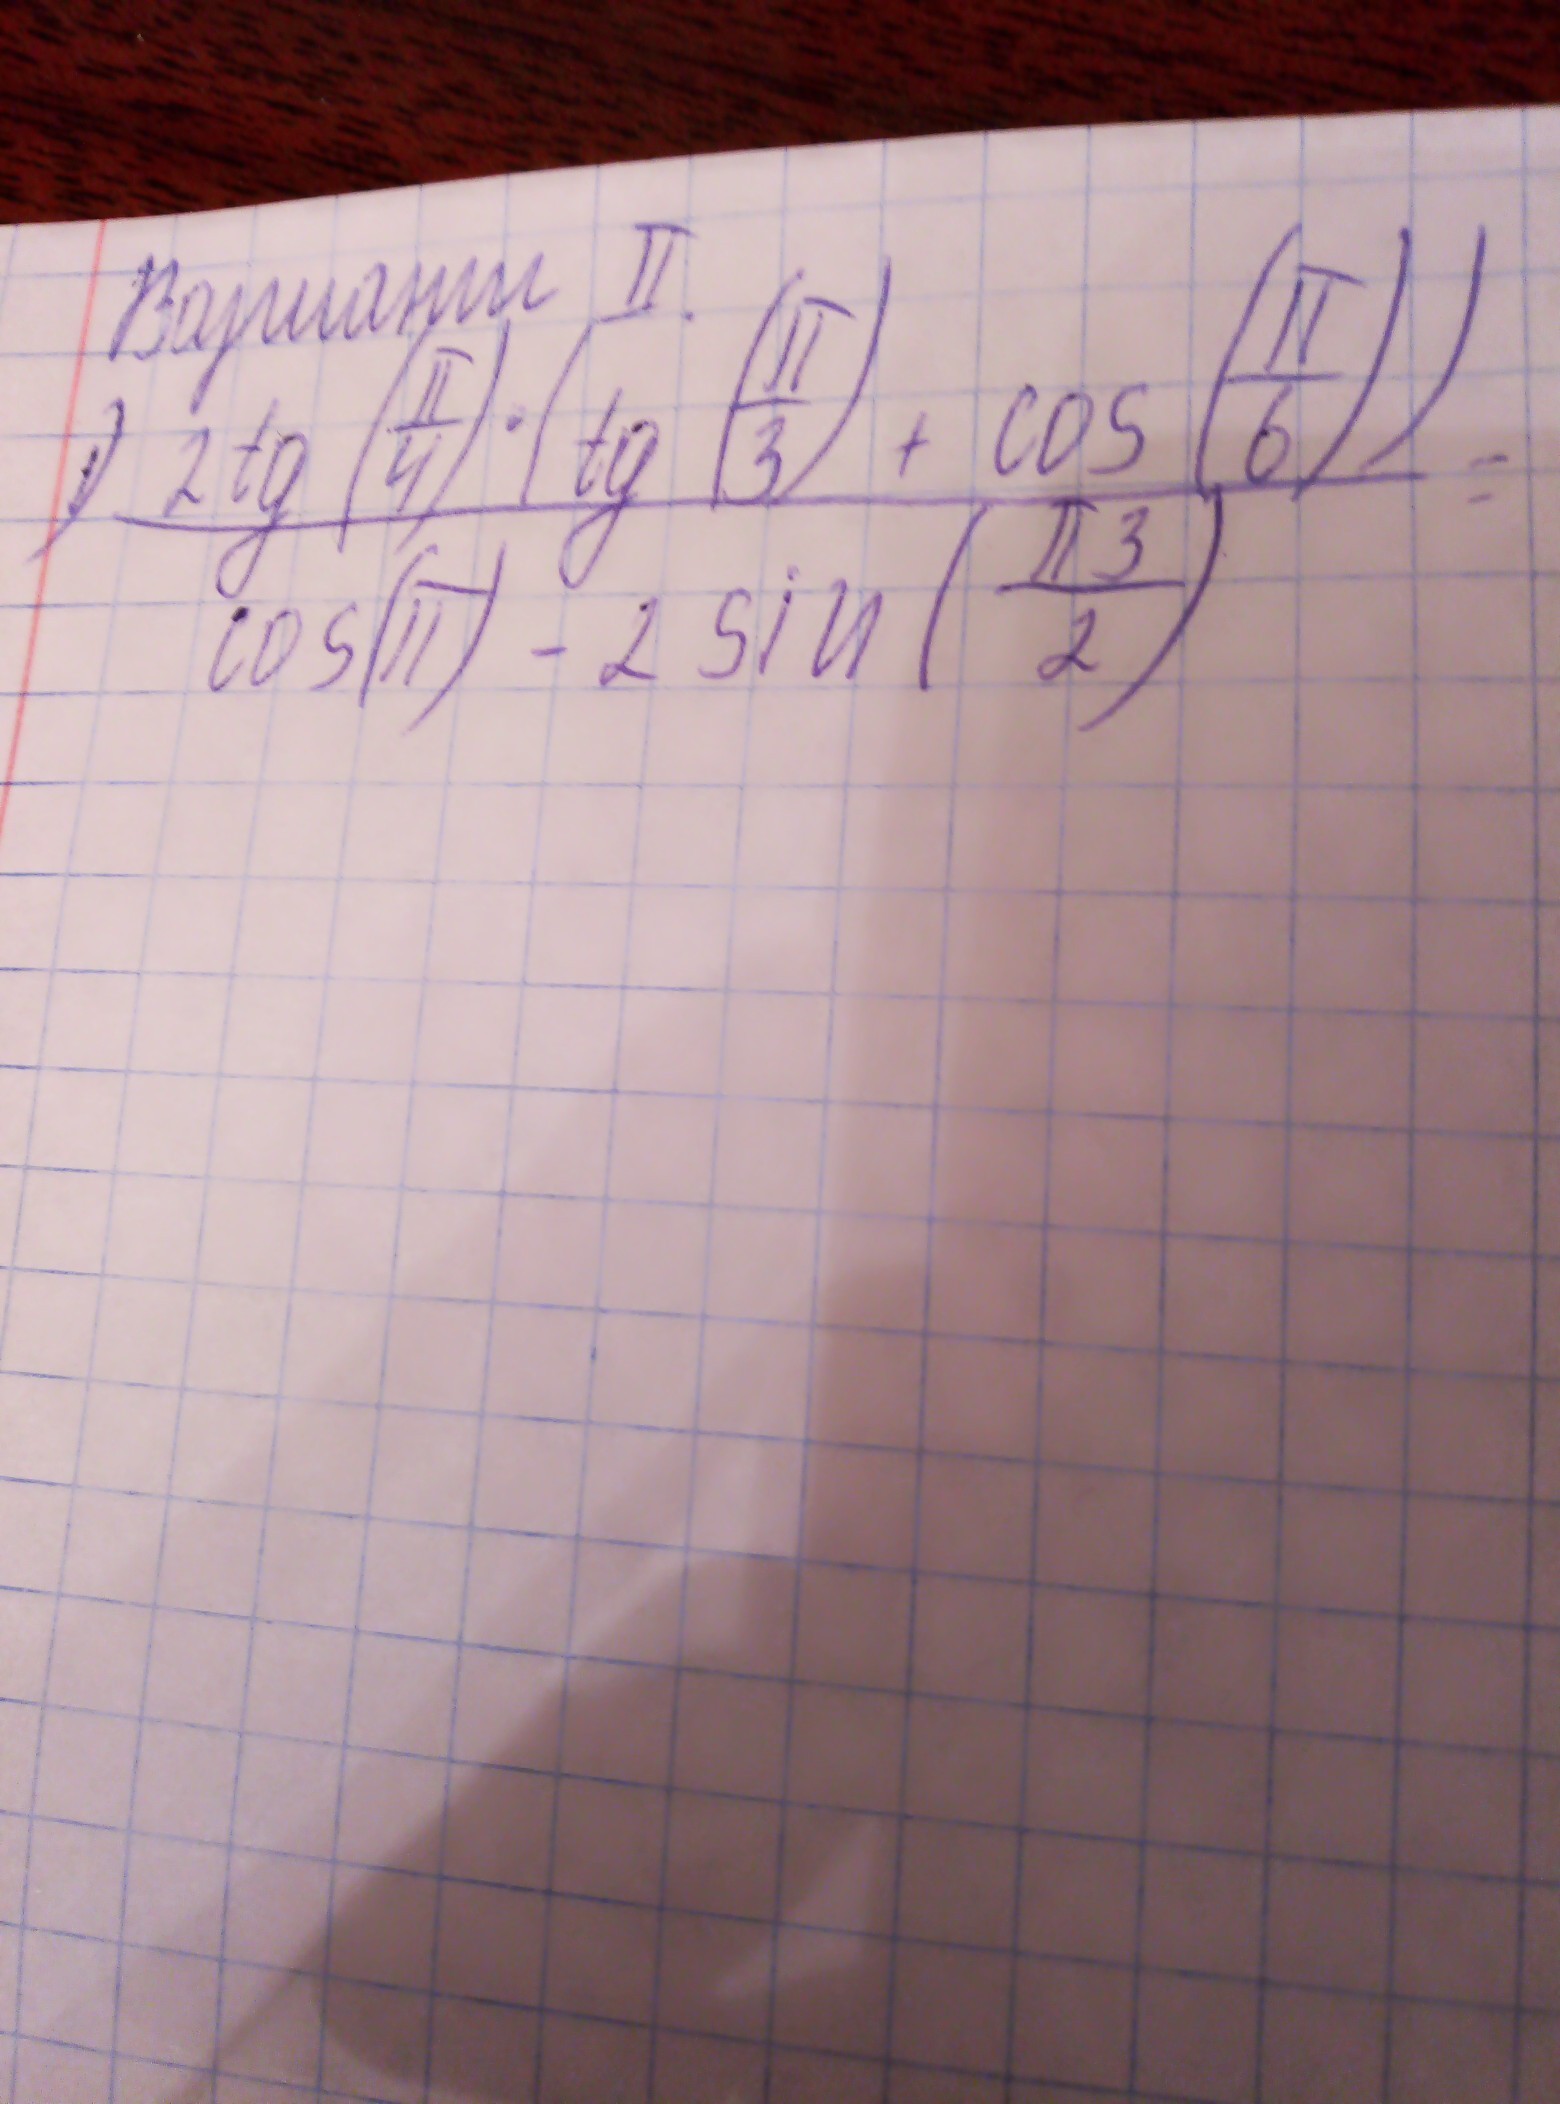 Вариант II.
1) 2tg(π/4)·(tg(π/3) + cos(π/6)) =
cos(π) - 2 sin(π3/2)